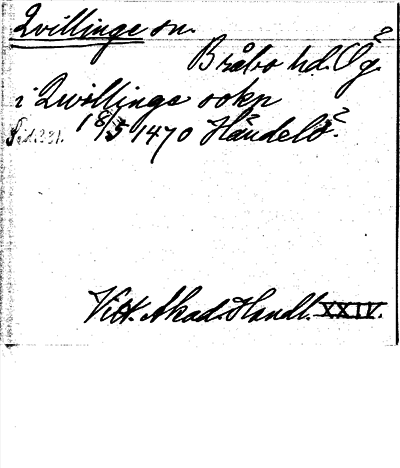 Qvillinge sn.
Bråbo hd. Ög.
i Qwillinge sokn
18/5 1470 Händelö.
Vitt. Akad. Handl. XXIV.